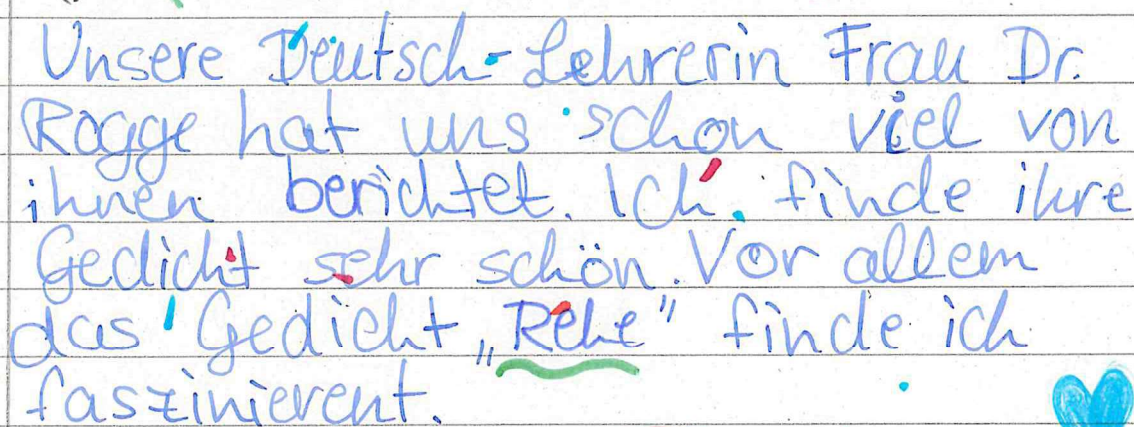 Unsere Deutsch-Lehrerin Frau Dr.
Rogge hat uns schon viel von
ihnen berichtet. Ich finde ihre
Gedicht sehr schön. Vor allem
das Gedicht „Rehe" finde ich
faszinierent.